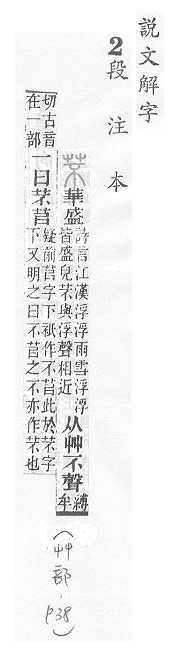 説文解字
2段注本
芣 華盛 詩言江漢浮浮雨雪浮浮皆盛皃芣與浮聲相近 从艸不聲 縛牟
切古音在一部 一曰芣苢 疑前苢字下祇作不苢此於芣字下又明之曰不苢之不亦作芣也
(艸部,P38)